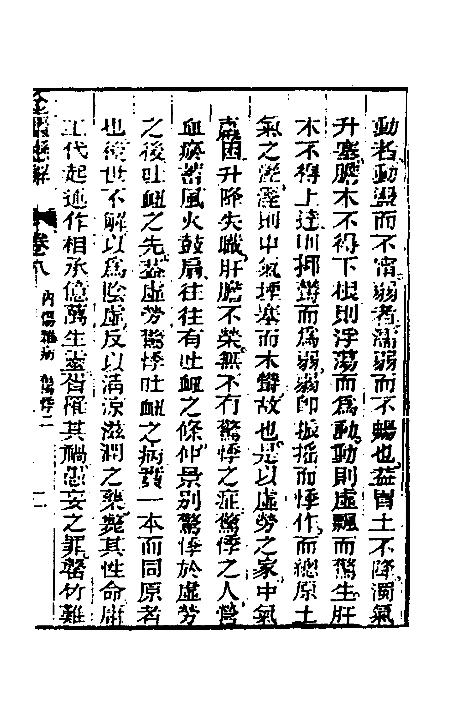 動者動盪而不甯弱者濡弱而不暢也蓋胃土不降濁氣
升塞膽木不得下根則浮蕩而爲動動則虛飄而驚生肝
木不得上達則抑鬱而爲弱弱卽振搖而悸作而總原土
氣之濕濕則中氣堙塞而木鬱故也是以虛勞之家中氣
虧困升降失職肝膽不榮無不有驚悸之症驚悸之人營
血瘀蓄風火鼓扇往往有吐衄之條仲景別驚悸於虛勞
之後吐衄之先蓋虛勞驚悸吐衄之病發一本而同原者
也後世不解以爲陰虛反以淸涼滋潤之藥斃其性命庸
工代起述作相承億萬生靈皆罹其禍愚妄之罪罄竹難
卷八 內傷雜病